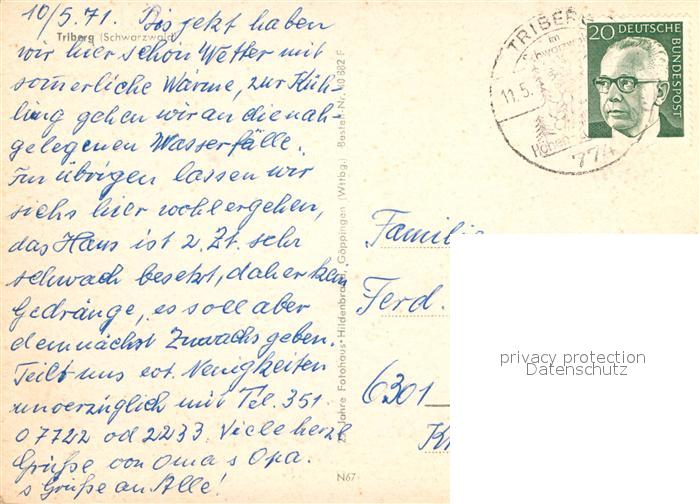 10/5.71. Bis jetzt haben
Triberg (Schwarzwald)
wir hier schon Wetter mit
sommerliche Wärme, zur Küh-
ling gehen wir an die nah-
gelegenen Wasserfälle.
Im übrigen lassen wir
sichs hier wohl ergehen,
das Haus ist z. Zt. sehr
schwach besetzt, daher kein
Gedränge, es soll aber
demnächst Zuwachs geben.
Teilt uns evt. Neuigkeiten
unverzüglich mit Tel. 351
07722 od 2233. Viele herzl
Grüße von Oma s Opa.
s Grüße an Alle!
Jahre Fotohaus Hildenbrand, Göppingen (Wttbg.) Bestell-Nr. 40 682 F
N67
TRIBERG
im
Schwarzwald
11.5.
774
20 DEUTSCHE
BUNDESPOST
Familie
Ferd.
6301
privacy protection
Datenschutz